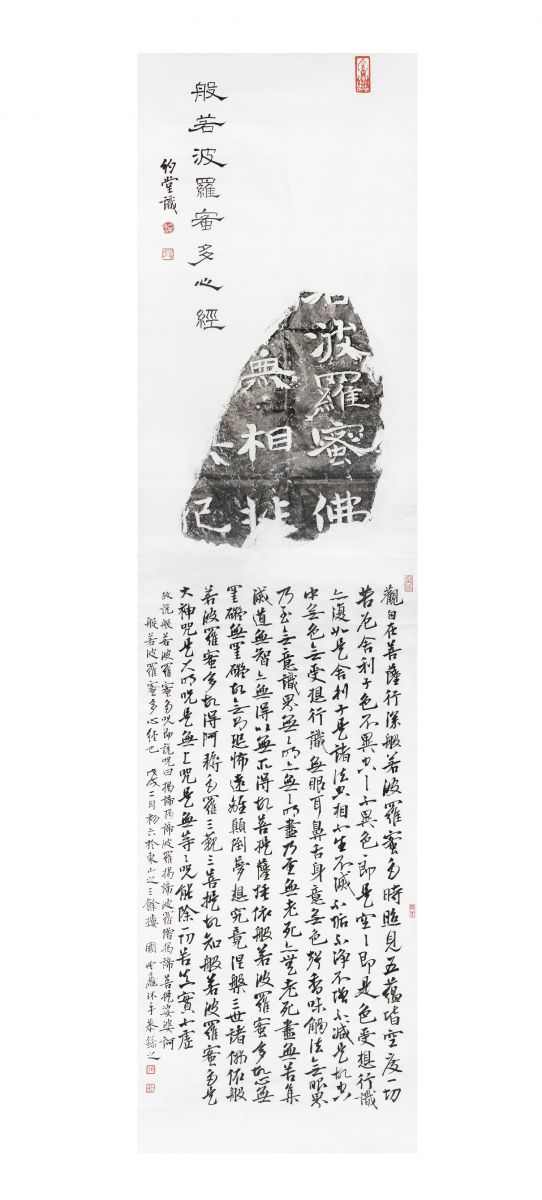 般若波羅蜜多心經
約堂識
波羅蜜佛
無相
觀自在菩薩行深般若波羅蜜多時照見五蘊皆空度一切
苦厄舍利子色不異空〻不異色〻即是空〻即是色受想行識
亦復如是舍利子是諸法空相不生不滅不垢不淨不增不減是故空
中無色無受想行識無眼耳鼻舌身意無色聲香味觸法無眼界
乃至無意識界無〻明亦無〻明盡乃至無老死亦無老死盡無苦集
滅道無智亦無得以無所得故菩提薩埵依般若波羅蜜多故心無
罣礙無罣礙故無有恐怖遠離顛倒夢想究竟涅槃三世諸佛依般
若波羅蜜多故得阿耨多羅三藐三菩提故知般若波羅蜜多是
大神咒是大明咒是無上咒是無等〻咒能除一切苦真實不虛
故說般若波羅蜜多咒即說咒曰揭諦揭諦波羅揭諦波羅僧揭諦菩提娑婆訶
般若波羅蜜多心經也 戊戌二月初六於東山之三餘樓 國 沐手恭錄之